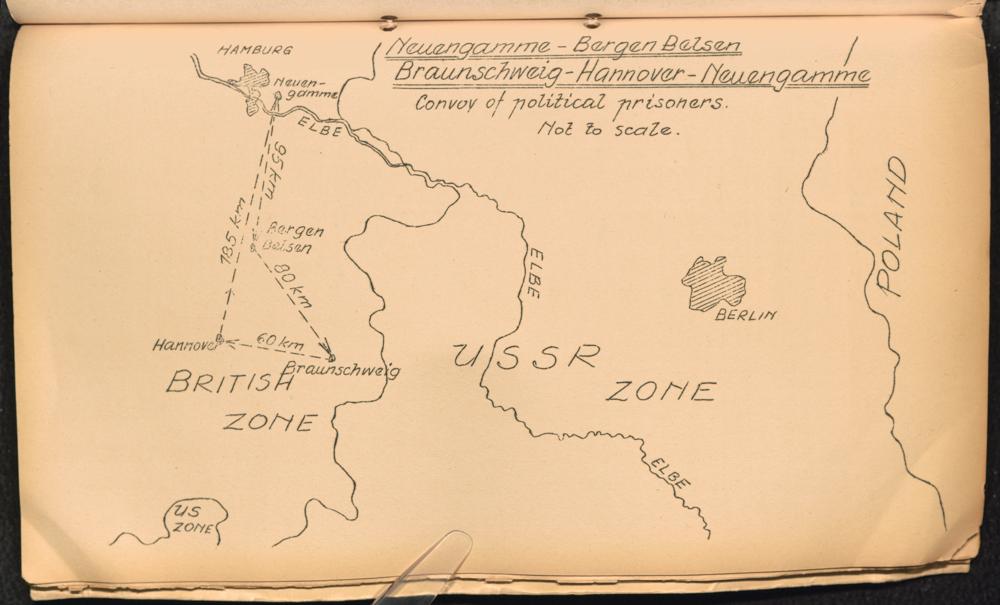 Neuengamme - Bergen Belsen
Braunschweig-Hannover-Neuengamme
Convoy of political prisoners.
Not to scale.
HAMBURG
Neuen-
gamme
ELBE
95 km
185 km
Bergen
Belsen
80 km
ELBE
POLAND
BERLIN
Hannover
60 km
Braunschweig
USSR
ZONE
BRITISH
ZONE
ELBE
US
ZONE